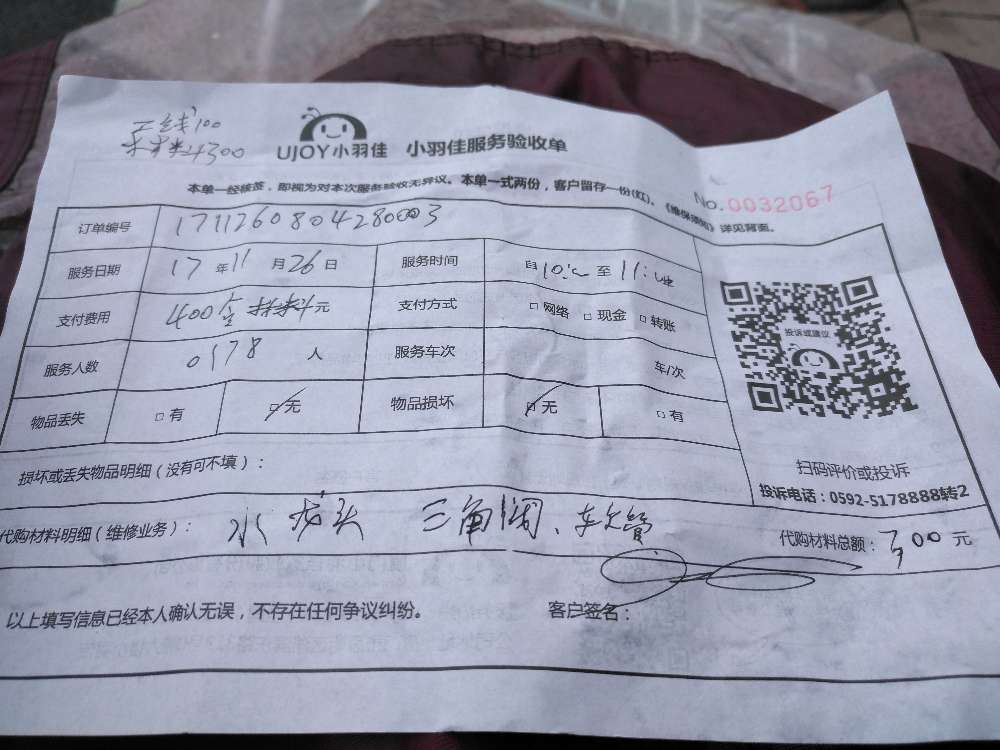 工钱100
材料300
UJOY小羽佳 小羽佳服务验收单
本单一经核签，即视为对本次服务验收无异议。本单一式两份，客户留存一份(红)。《维保须知》详见背面。
No.0032067
订单编号 1711260804280003
服务日期 17年11月26日 服务时间 自10: 至11:
支付费用 400含材料元 支付方式 □网络 □现金 □转账
服务人数 0178 人 服务车次 车/次
物品丢失 □有 □无 物品损坏 □无 □有
投诉或建议
扫码评价或投诉
投诉电话：0592-5178888转2
损坏或丢失物品明细（没有可不填）：
代购材料明细（维修业务）： 水龙头 三角阀、软管 代购材料总额：300元
以上填写信息已经本人确认无误，不存在任何争议纠纷。 客户签名：